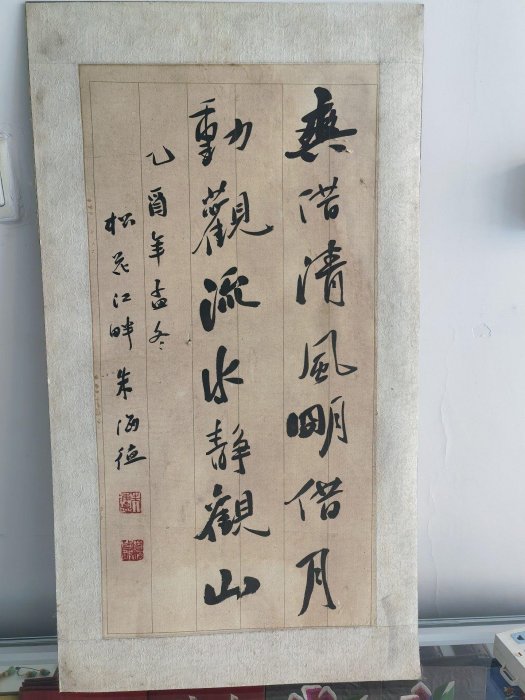 爽借清風明借月
動觀流水靜觀山
乙酉年孟冬
松花江畔朱海德